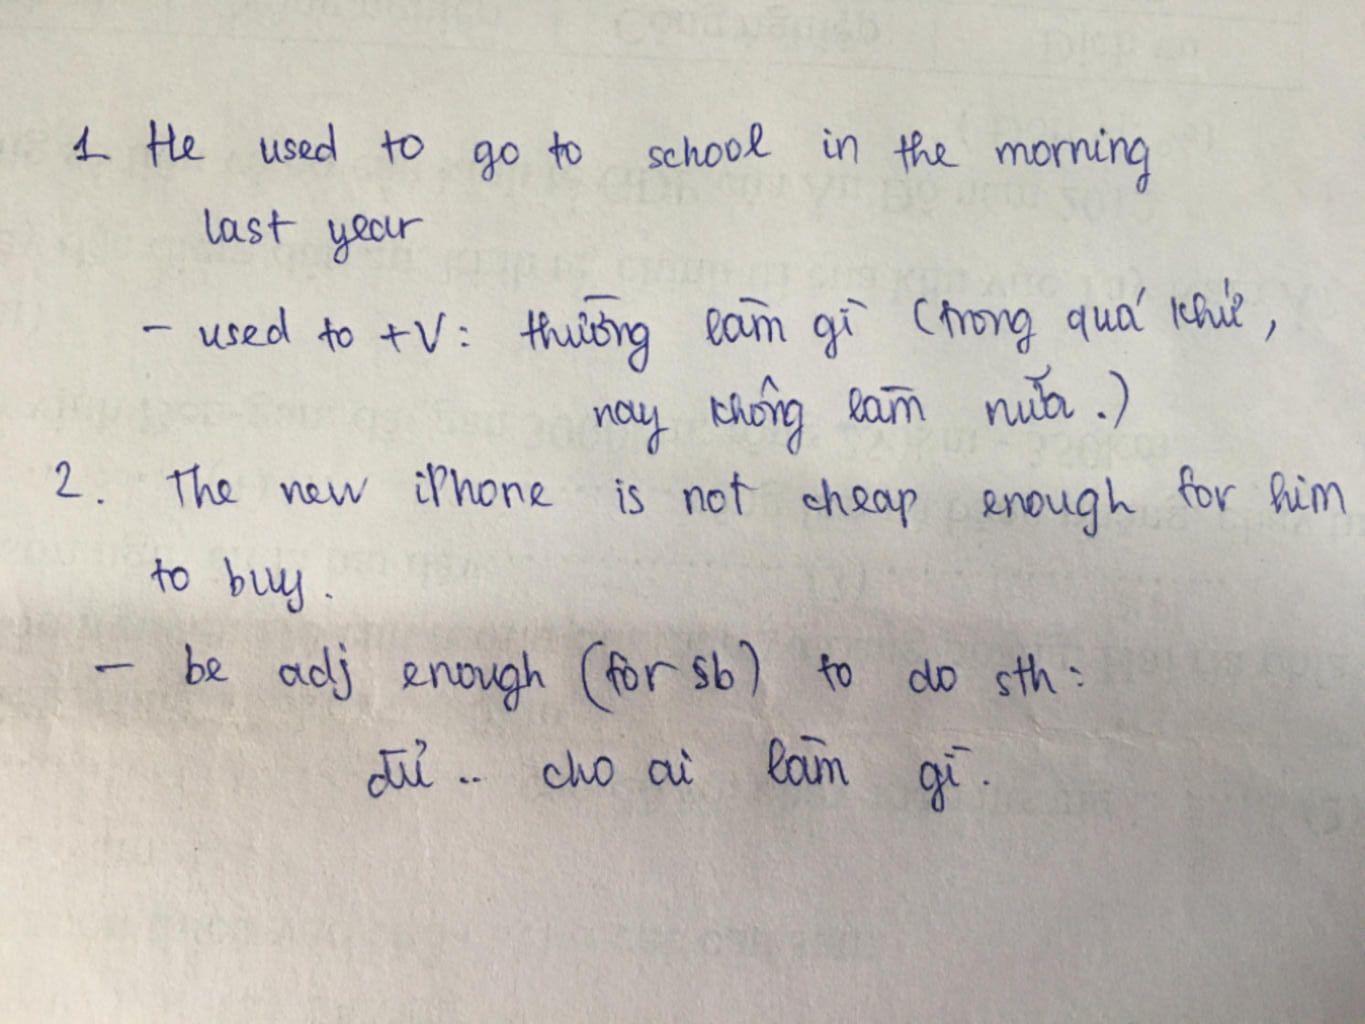 1 He used to go to school in the morning
last year
- used to +V: thường làm gì (trong quá khứ,
nay không làm nữa.)
2. The new iPhone is not cheap enough for him
to buy.
- be adj enough (for sb) to do sth:
đủ .. cho ai làm gì.